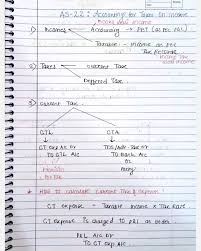 AS-22 : Accounting for Taxes on Income
1) Incomes → Accounting → PBT (as per P&L)
Taxable → Income as per
Tax Records
2) Taxes → Current Tax
Deferred Tax
3) Current Tax
CTL CTA
CT exp A/c Dr
To CTL A/c To Bank A/c
★ How to calculate Current Tax expense?
CT expense = Taxable income x Tax Rate
CT expense is charged to P&L as under.
P&L A/c Dr
To CT exp A/c